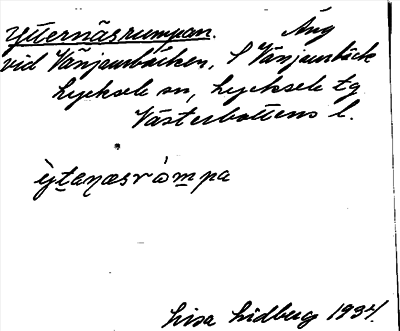 Ytternäsrumpan. Äng
vid Vänjaurbäcken, S Vänjaurbäck
Lycksele sn, Lycksele tg
Västerbottens l.
Lisa Lidberg 1934.